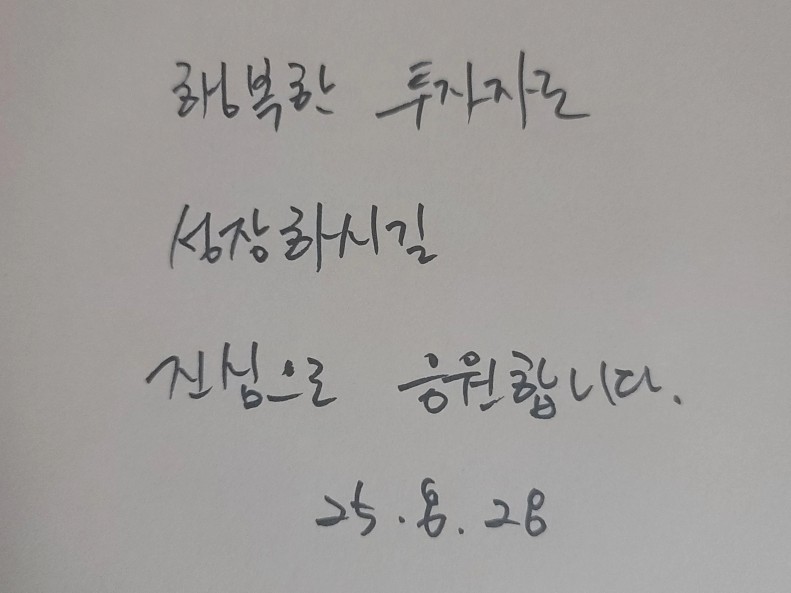 행복한 투자자로
성장하시길
진심으로 응원합니다.
25. 8. 28